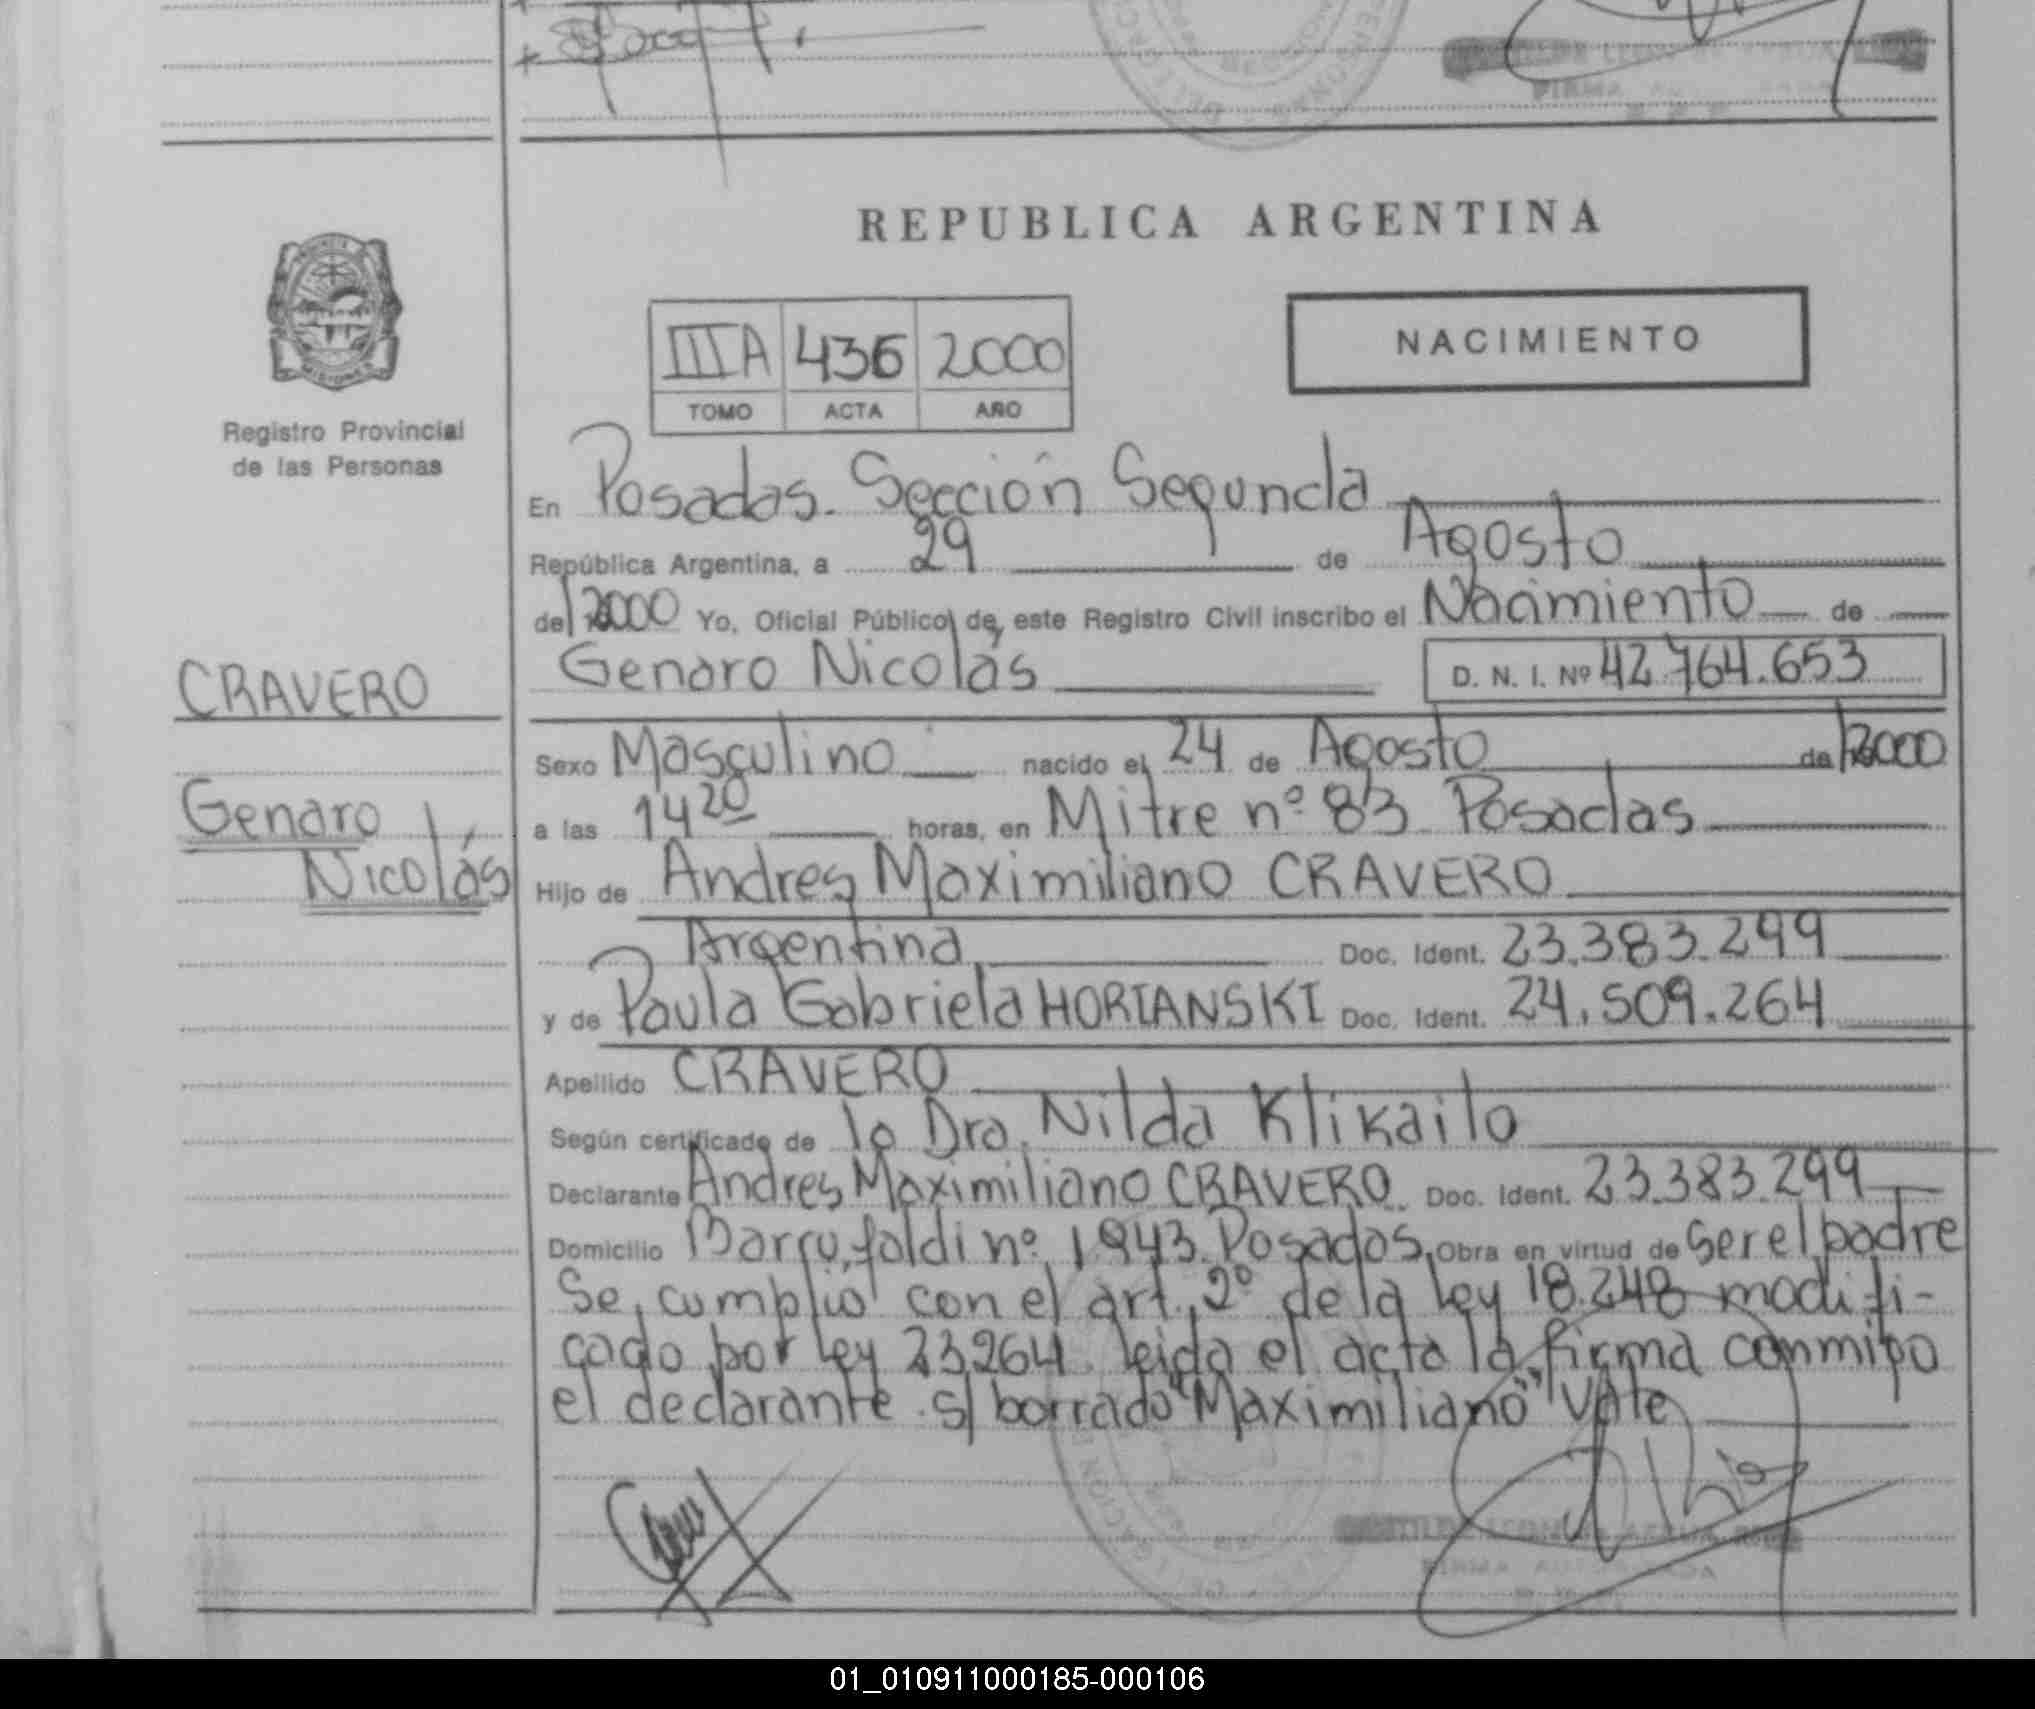 REPUBLICA ARGENTINA
MISIONES
Registro Provincial
de las Personas
IIIA 436 2000
TOMO ACTA AÑO
NACIMIENTO
En Posadas. Sección Segunda
República Argentina, a 29 de Agosto
del 2000 Yo, Oficial Público de este Registro Civil inscribo el Nacimiento de
Genaro Nicolás D. N. I. Nº 42.764.653
CRAVERO
Genaro
Nicolás
Sexo Masculino nacido el 24 de Agosto de 2000
a las 14 20 horas, en Mitre nº 83 Posadas
Hijo de Andres Maximiliano CRAVERO
Argentina Doc. Ident. 23.383.299
y de Paula Gabriela HORIANSKI Doc. Ident. 24.509.264
Apellido CRAVERO
Según certificado de la Dra. Nilda Klikailo
Declarante Andres Maximiliano CRAVERO Doc. Ident. 23.383.299
Domicilio nº 1943 Posadas, Obra en virtud de Ser el padre
Se cumplió con el art. 2º de la Ley 18.248 modifi-
cado por Ley 23264 leida el acta la firma conmigo
el declarante s/ borrado "Maximiliano" Vale
01_010911000185-000106